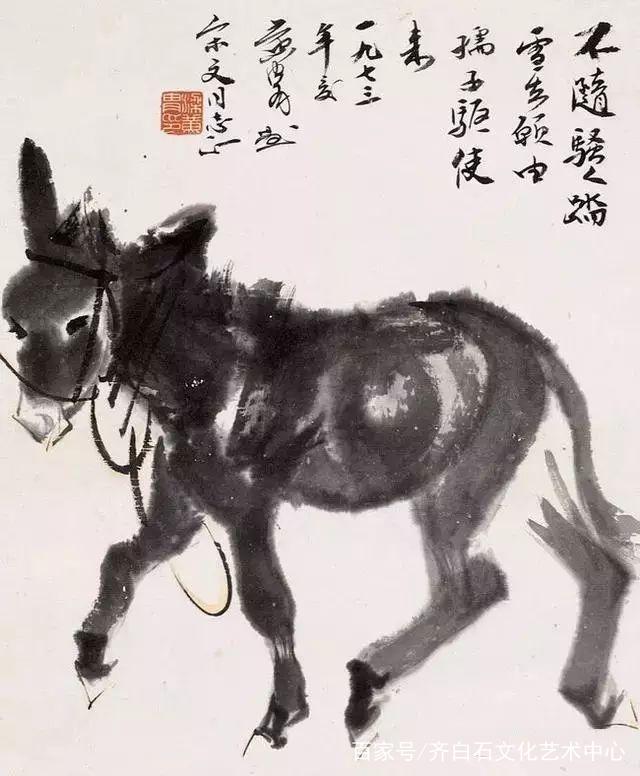 不隨騷人踏
雪去願由
孺子驅使
来
一九七三
年
黄胄画
宗文同志正
梁黄胄印
百家号/齐白石文化艺术中心